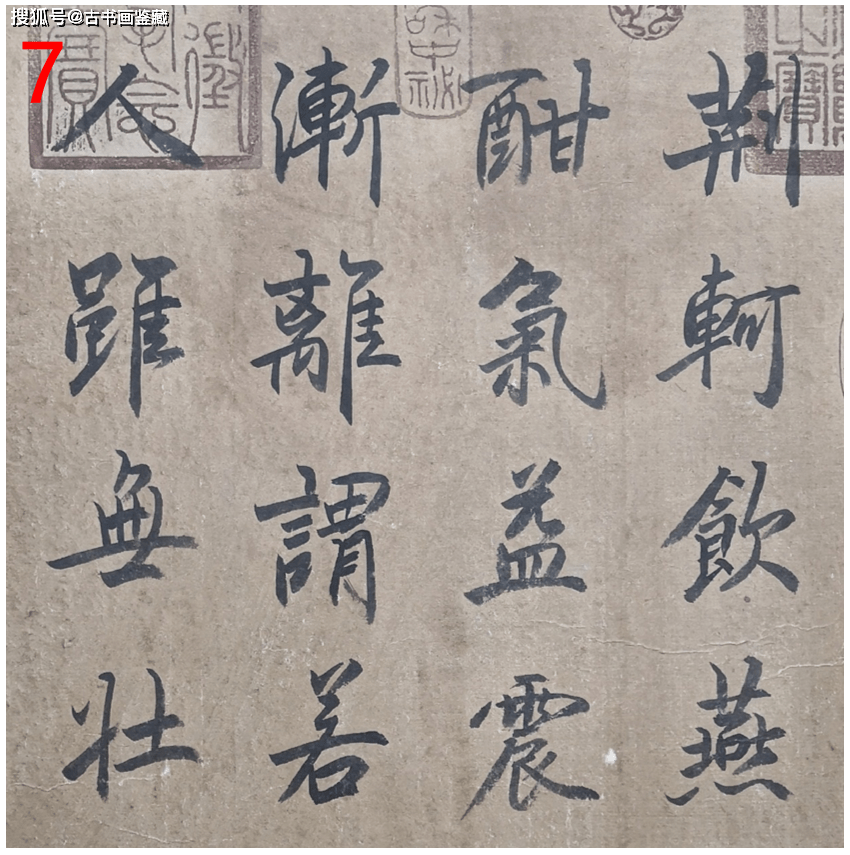 搜狐号@古书画鉴藏
7
荊軻飲燕
酣氣益震
漸離謂若
人雖無壮